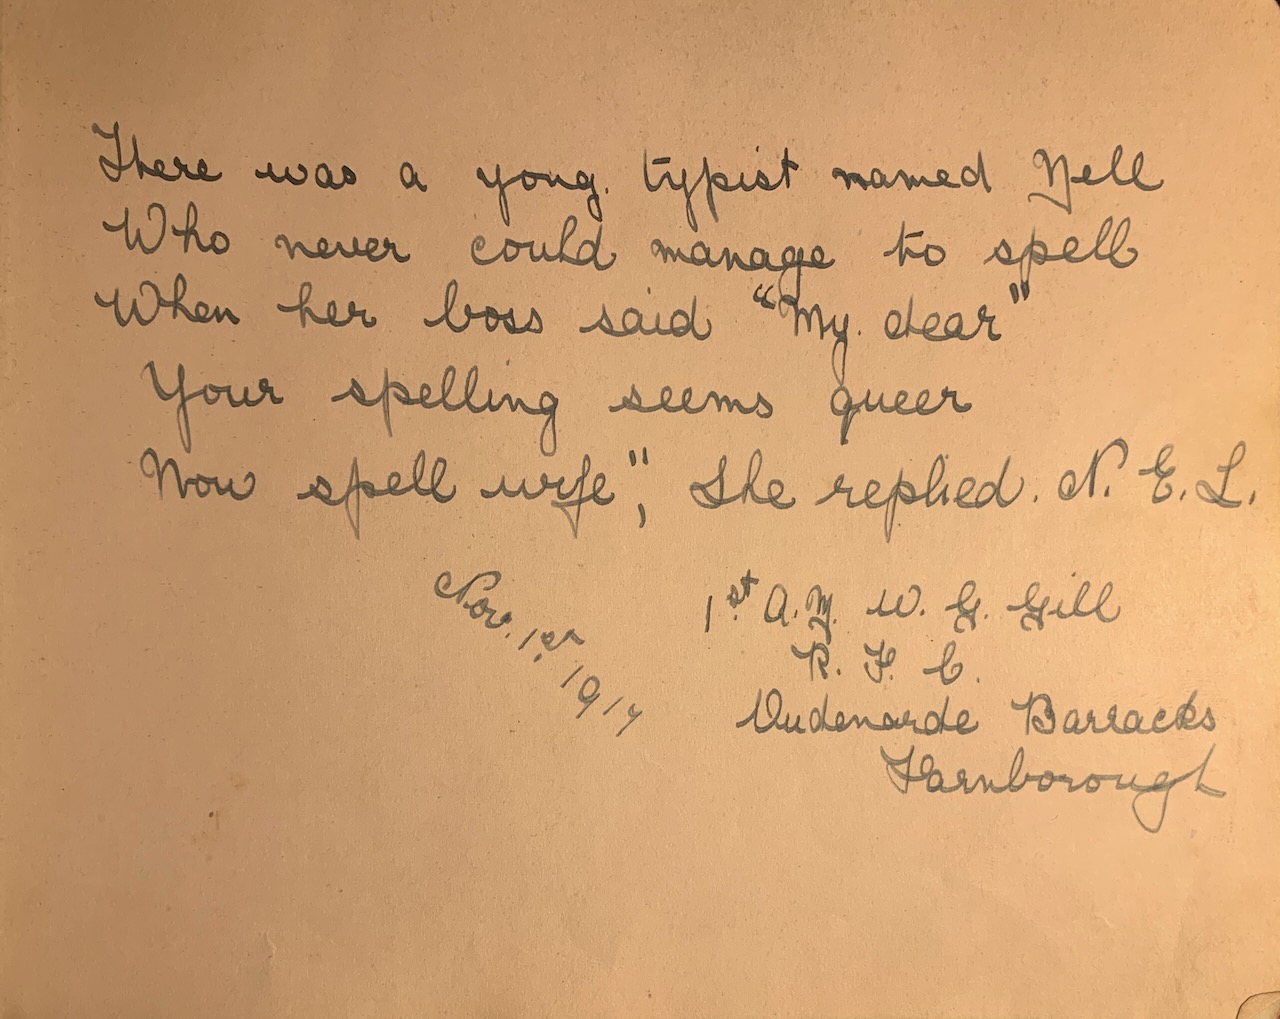 There was a yong. typist named Nell
Who never could manage to spell
When her boss said "My. dear"
Your spelling seems queer
Now spell wife", She replied. N. E. L.
Nov. 1st. 1917
1st A.M. W. G. Gill
R. F. C.
Oudenarde Barracks
Farnborough